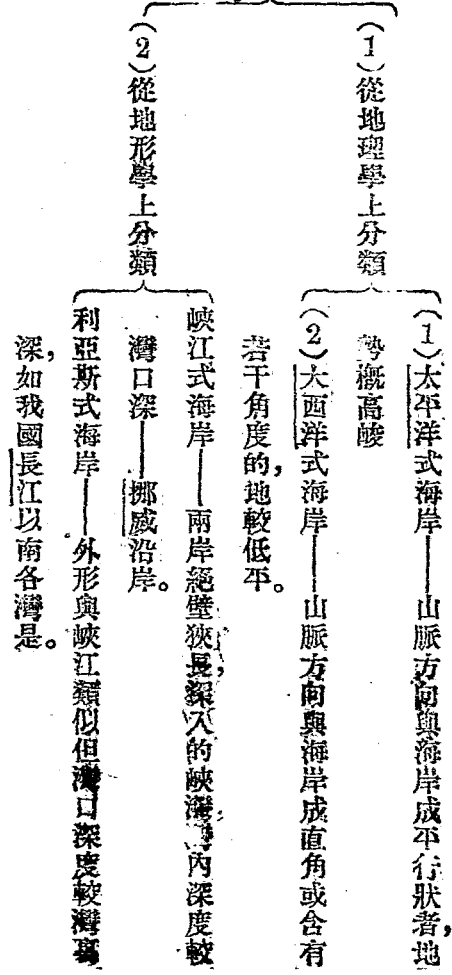 (1)從地理學上分類
(1)太平洋式海岸——山脈方向與海岸成平行狀者，地
勢概高峻
(2)大西洋式海岸——山脈方向與海岸成直角或含有
若干角度的，地較低平。
(2)從地形學上分類
峽江式海岸——兩岸絕壁狹長，深入的峽灣，灣內深度較
灣口深——挪威沿岸。
利亞斯式海岸——外形與峽江類似但灣口深度較灣
深，如我國長江以南各灣是。